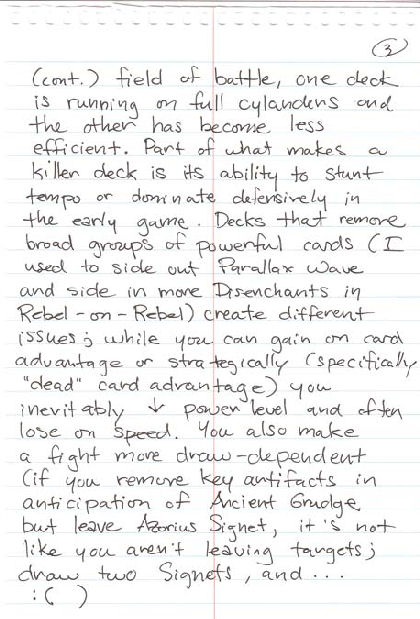 3
(cont.) field of battle, one deck
is running on full cylanders and
the other has become less
efficient. Part of what makes a
killer deck is its ability to stunt
tempo or dominate defensively in
the early game. Decks that remove
broad groups of powerful cards (I
used to side out Parallax Wave
and side in more Disenchants in
Rebel-on-Rebel) create different
issues; while you can gain on card
advantage or strategically (specifically
"dead" card advantage) you
inevitably ↓ power level and often
lose on speed. You also make
a fight more draw-dependent
(if you remove key artifacts in
anticipation of Ancient Grudge
but leave Azorius Signet, it's not
like you aren't leaving targets;
draw two Signets, and ...
:( )